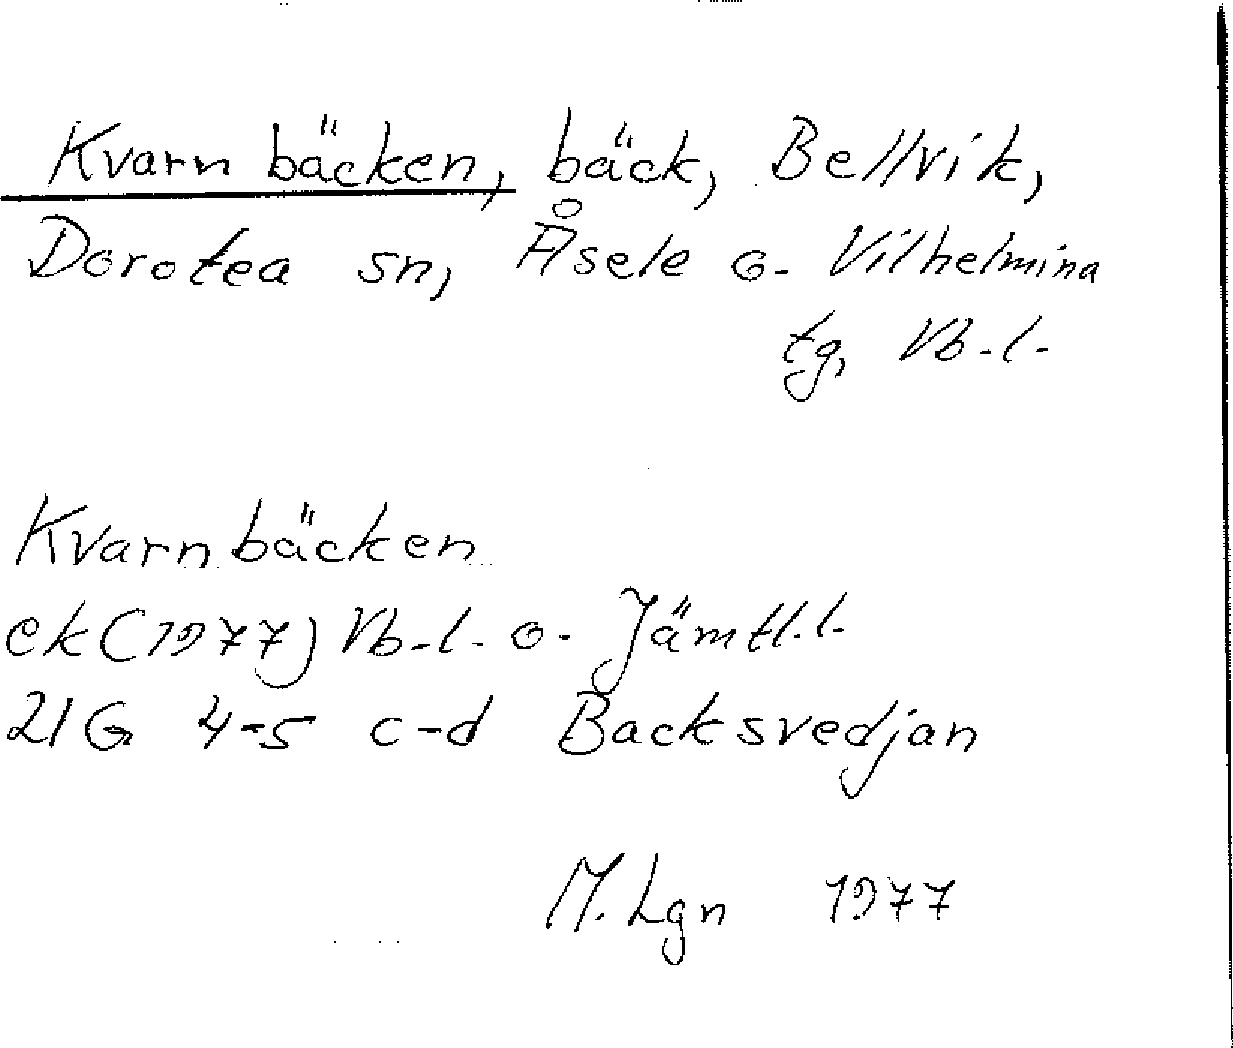 Kvarnbäcken, bäck, Bellvik,
Dorotea sn, Åsele o. Vilhelmina
tg, Vb.l.
Kvarnbäcken
ek (1977) Vb.l. o. Jämtl.l.
21G 4-5 c-d Backsvedjan
M. Lgn 1977